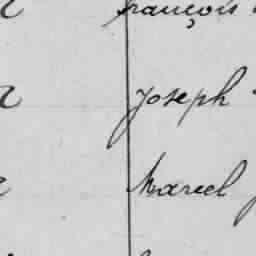 françois
Joseph
Marcel